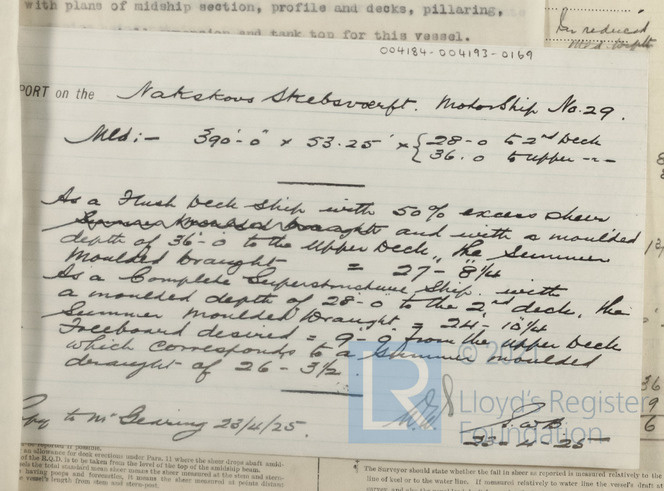 with plans of midship section, profile and decks, pillaring,
and tank top for this vessel.
In reduced
004184-004193-0169
PORT on the Nakskovs Skibsværft. Motorship No. 29.
Mld:- 390'-0" x 53.25' x { 28-0 to 2nd Deck
36.0 to upper -"-
As a Flush Deck Ship with 50% excess sheer
Summer Moulded Draught and with a moulded
depth of 36-0 to the Upper Deck, the Summer
Moulded Draught = 27-8 1/4
As a Complete Superstructure Ship with
a moulded depth of 28-0 to the 2nd deck, the
Summer Moulded Draught = 24-10 1/4
Freeboard desired = 9-9 from the Upper Deck
which corresponds to a Summer moulded
draught of 26-3 1/2.
Copy to Mr Gearing 23/4/25.
© 2021
Lloyd's Register
Foundation
23-4-25
36
9
6
an allowance for deck erections under Para. 11 where the sheer drops abaft amid-
of the R.Q.D. is to be taken from the level of the top of the amidship beam.
having poops and forecastles, it means the sheer measured at points distant
vessel's length from stem and stern-post.
The Surveyor should state whether the fall in sheer as reported is measured relatively to the
line of keel or to the water line. If measured relatively to water line the vessel's draft at